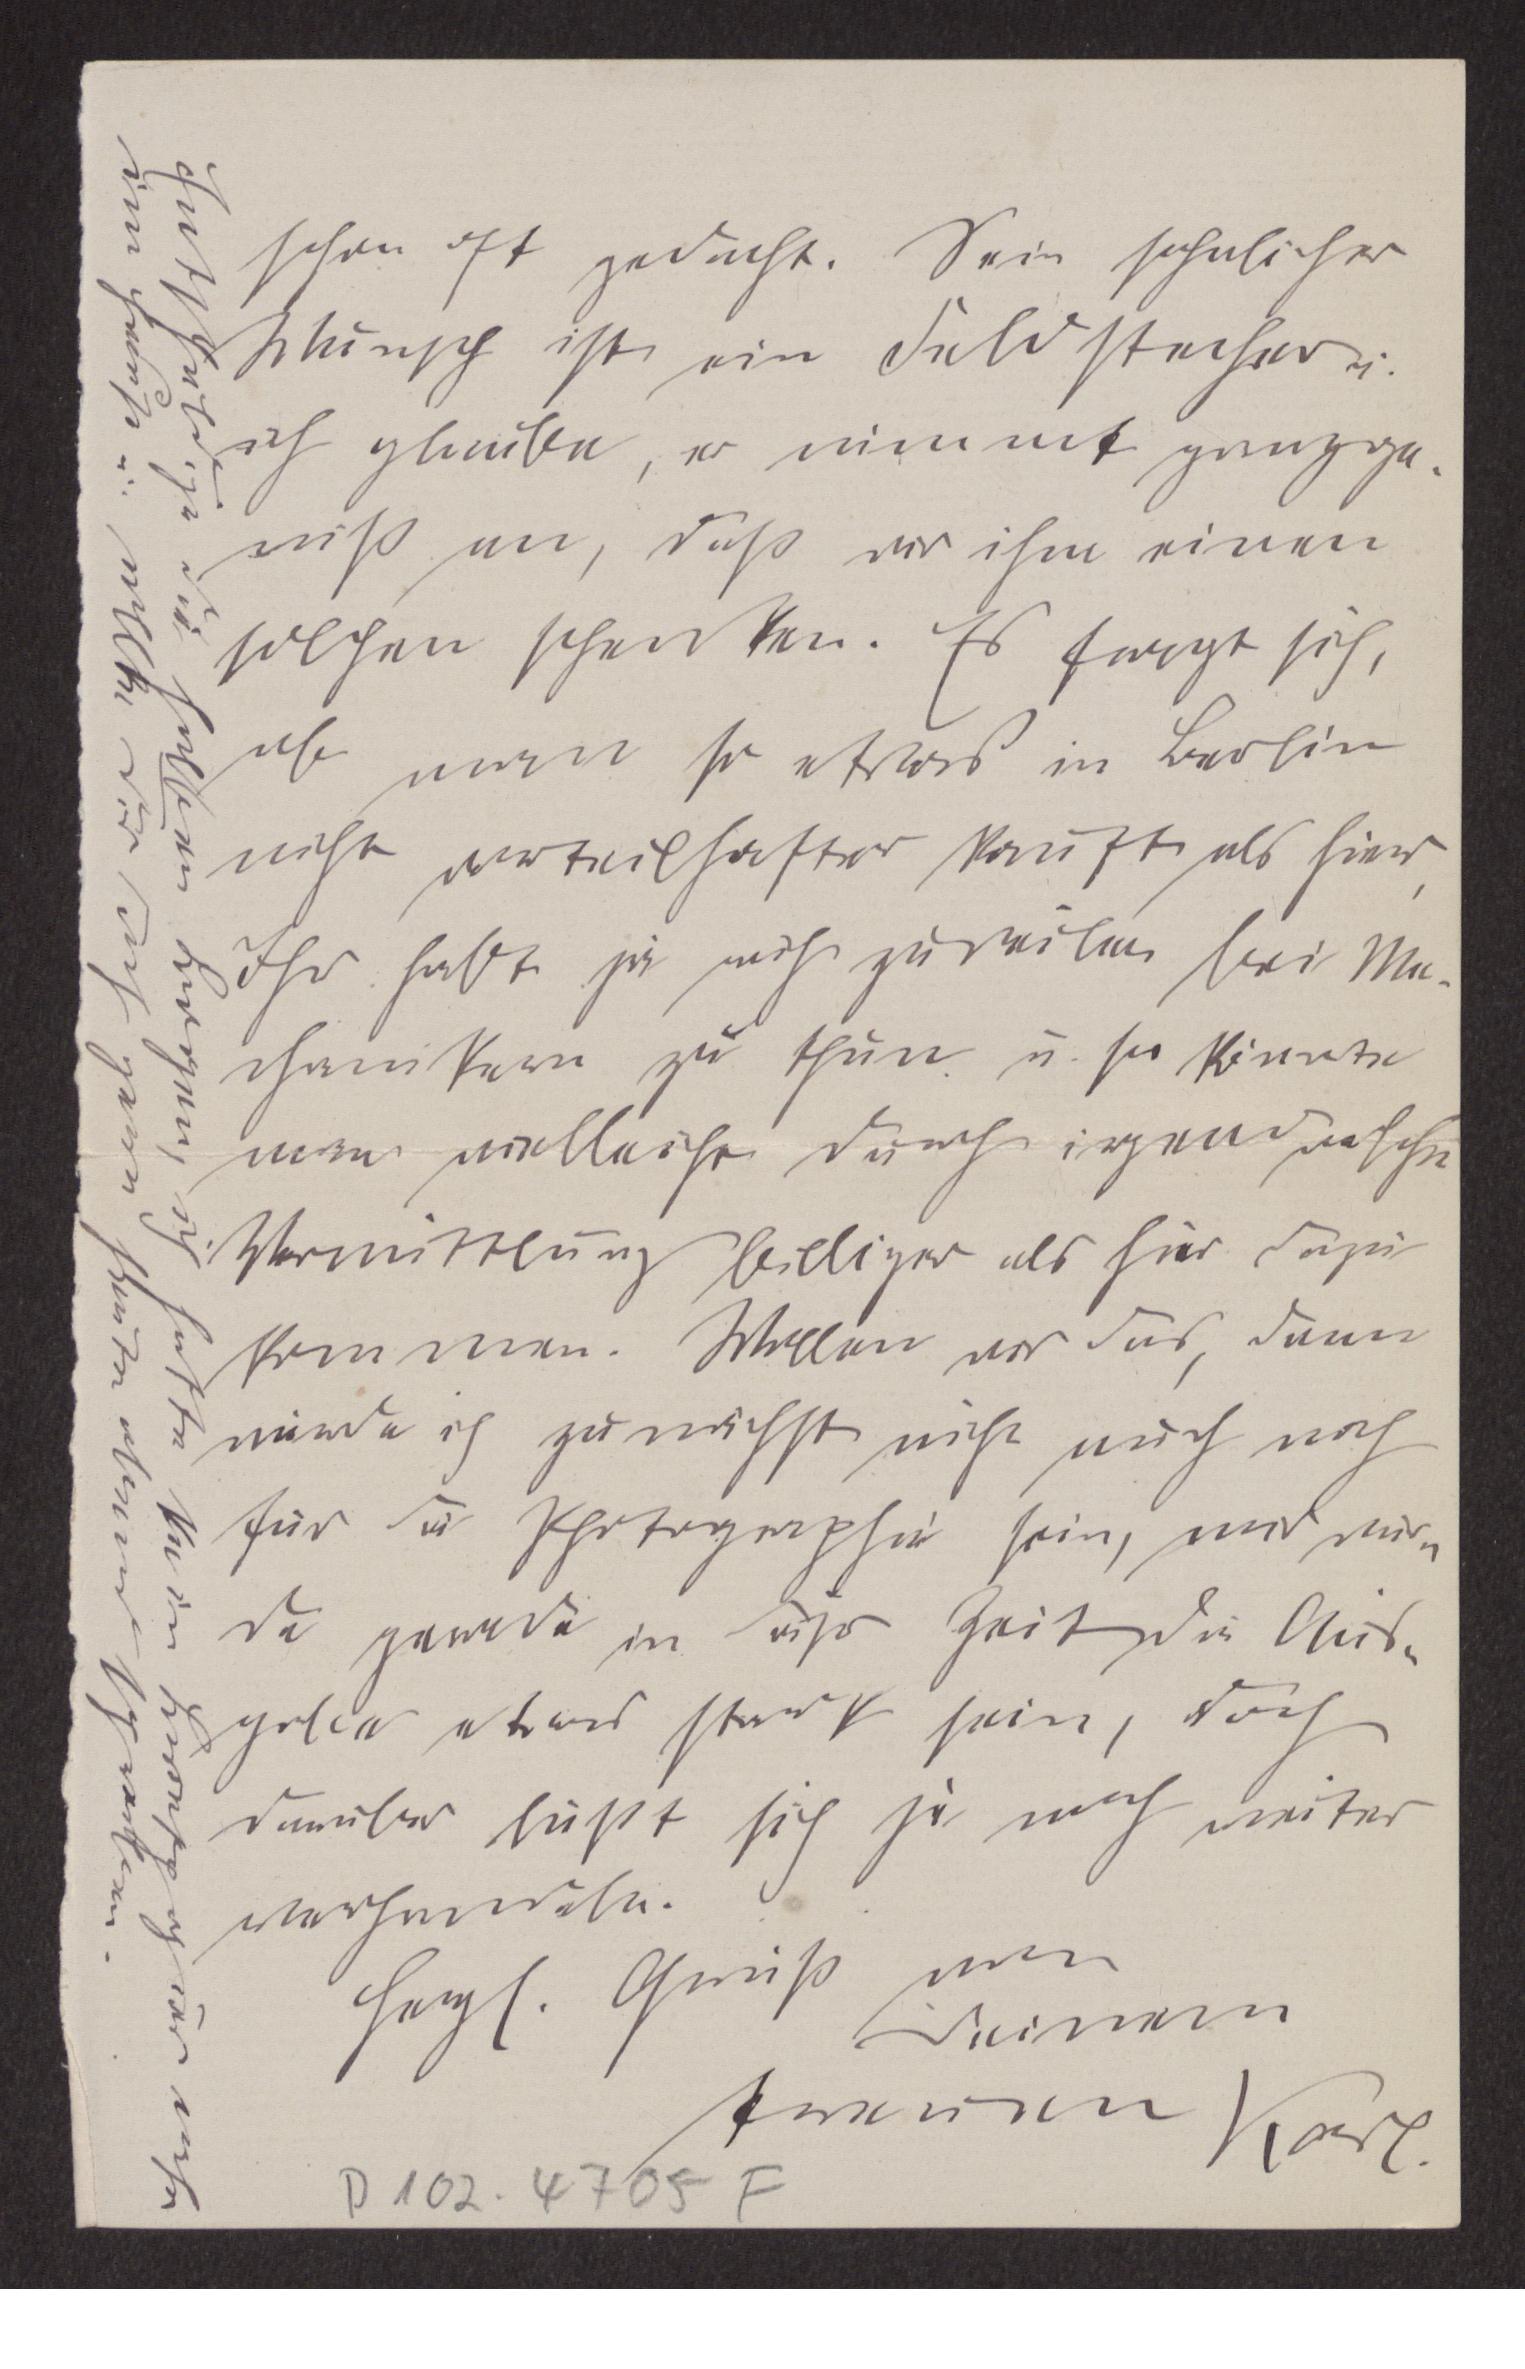 schon oft gedacht. Sein sehnlicher
Wunsch ist ein Feldstecher u.
ich glaube, er nimmt ganz ge-
wiß an, daß wir ihm einen
solchen schenken. Es fragt sich,
ob man so etwas in Berlin
nicht vorteilhafter kauft als hier,
Ihr habt ja noch zuweilen bei Me-
chanikern zu thun u. so könnte
man vielleicht durch irgendwelche
Vermittlung billiger als hier dazu
kommen. Wollen wir das, dann
würde ich zunächst nicht auch noch
für die Photographie sein, mir wür-
de gerade in dieser Zeit die Aus-
gabe etwas stark sein, doch
darüber läßt sich ja noch weiter
verhandeln.
Herzl. Gruß von
Deinem
treuen Karl.
D 102. 4705 F
die ich hatte kein
u. wollte Dir doch gern